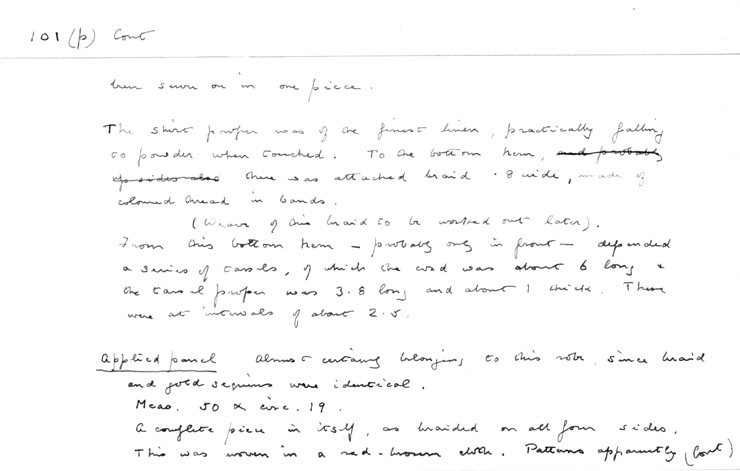 101 (p) Cont
been sewn on in one piece.
The skirt proper was of the finest linen, practically falling
to powder when touched. To the bottom hem, and probably
up sides also there was attached braid .8 wide, made of
coloured thread in bands.
(Weave of this braid to be worked out later).
From this bottom hem - probably only in front - depended
a series of tassels, of which the cord was about 6 long &
the tassel proper was 3.8 long and about 1 thick. These
were at intervals of about 2.5.
Applied panel Almost certainly belonging to this robe, since braid
and gold sequins were identical.
Meas. 50 x circ. 19.
A complete piece in itself, as braided on all four sides.
This was woven in a red-brown cloth. Patterns apparently (Cont)